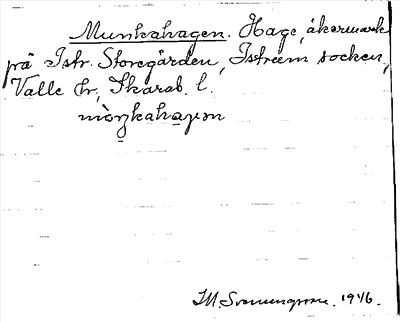 Munkahagen. Hage, åkermark
på Istr. Storegården, Istrum socken,
Valle hr, Skarab. l.
mùŋkahaɡen
1946.